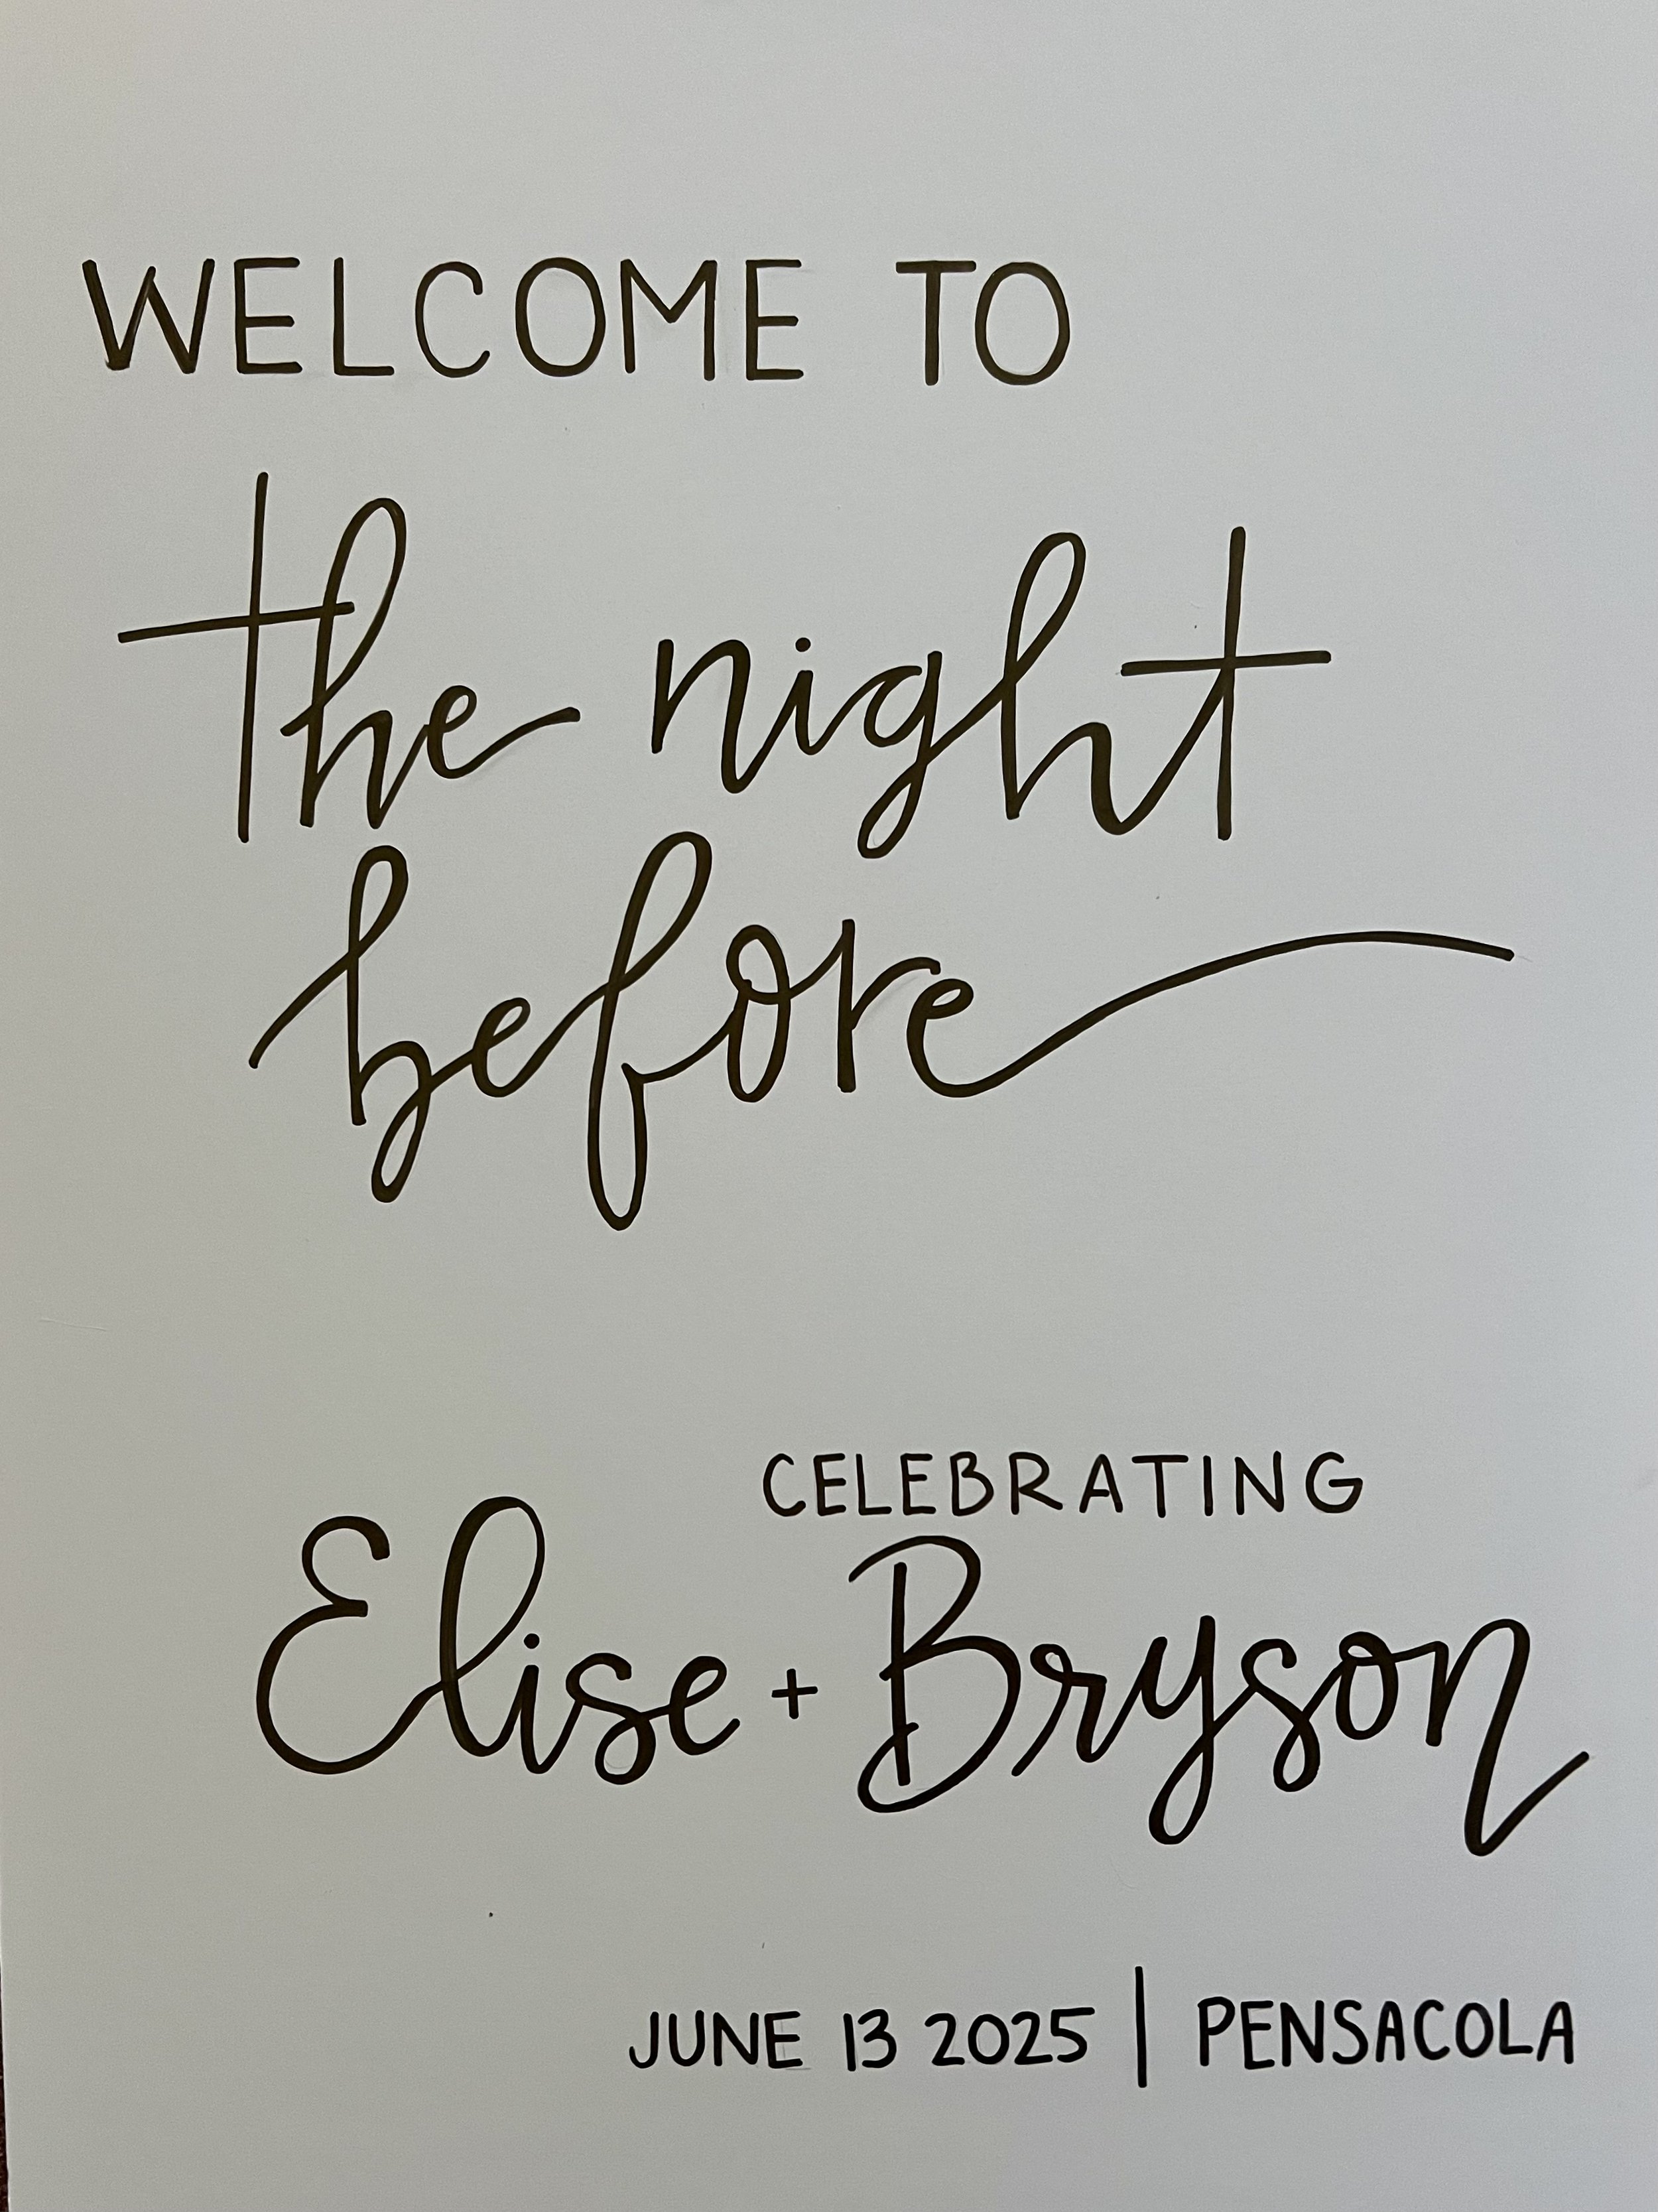 WELCOME TO
the night
before
CELEBRATING
Elise + Bryson
JUNE 13 2025 | PENSACOLA